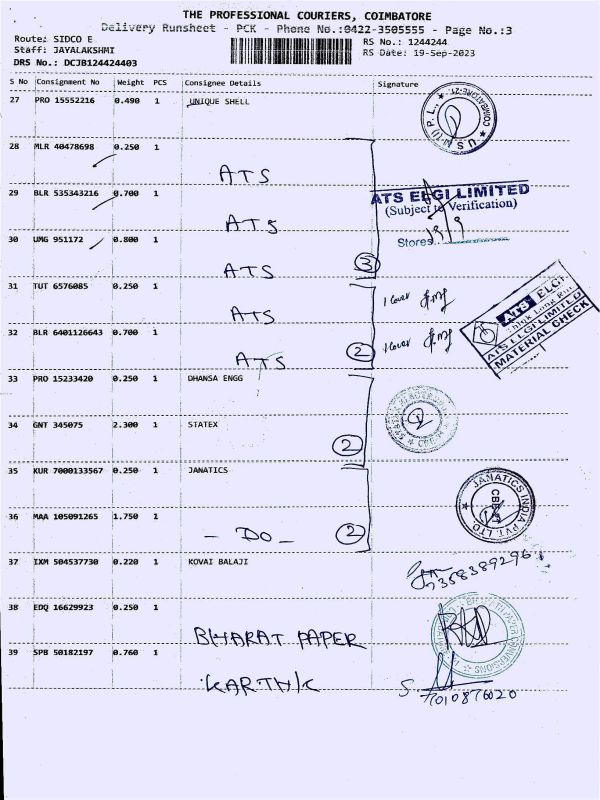 THE PROFESSIONAL COURIERS, COIMBATORE
Delivery Runsheet - PCK - Phone No.:0422-3505555 - Page No.:3
Route: SIDCO E RS No.: 1244244
Staff: JAYALAKSHMI RS Date: 19-Sep-2023
DRS No.: DCJB124424403
S No Consignment No Weight PCS Consignee Details Signature
27 PRO 15552216 0.490 1 UNIQUE SHELL
COIMBATORE-21
U S M (I) P. L.,
28 MLR 40478698 0.250 1
ATS
29 BLR 535343216 0.700 1
ATS ELGI LIMITED
(Subject to Verification)
ATS
19/9
Stores
30 UMG 951172 0.800 1
ATS
3
31 TUT 6576085 0.250 1
1 Cover
ATS
ATS ELGI
ATS ELGI LIMITED
MATERIAL CHECK
32 BLR 6401126643 0.700 1
1 Cover
ATS
2
33 PRO 15233420 0.250 1 DHANSA ENGG
34 GNT 345075 2.300 1 STATEX
2
35 KUR 7000133567 0.250 1 JANATICS
JANATICS INDIA PVT. LTD.
CBE
36 MAA 105091265 1.750 1
- DO -
2
37 IXM 504537730 0.220 1 KOVAI BALAJI
7358389296
38 EDQ 16629923 0.250 1
BHARAT PAPER
BHARATH PAPER CONVERSIONS
39 SPB 50182197 0.760 1
KARTHIK
S
7010876020